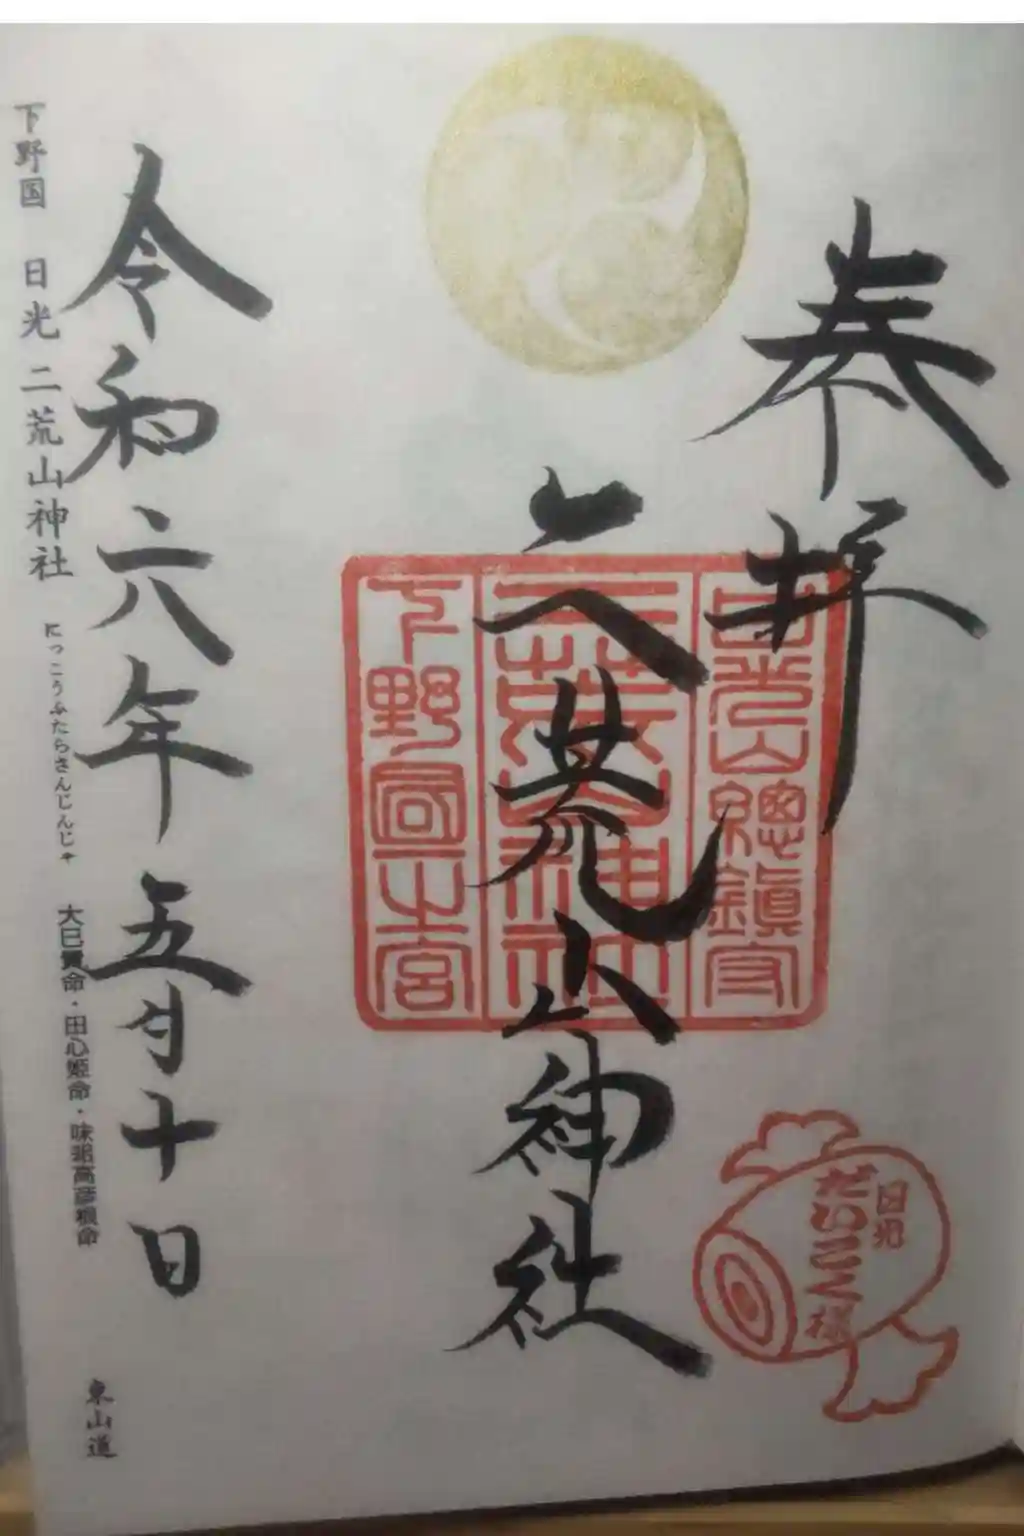 奉拝
日光山總鎮守
二荒山神社
下野国一宮
二荒山神社
日光
だいこく様
令和六年五月十日
下野国 日光 二荒山神社 にっこうふたらさんじんじゃ 大己貴命・田心姫命・味耜高彦根命 東山道